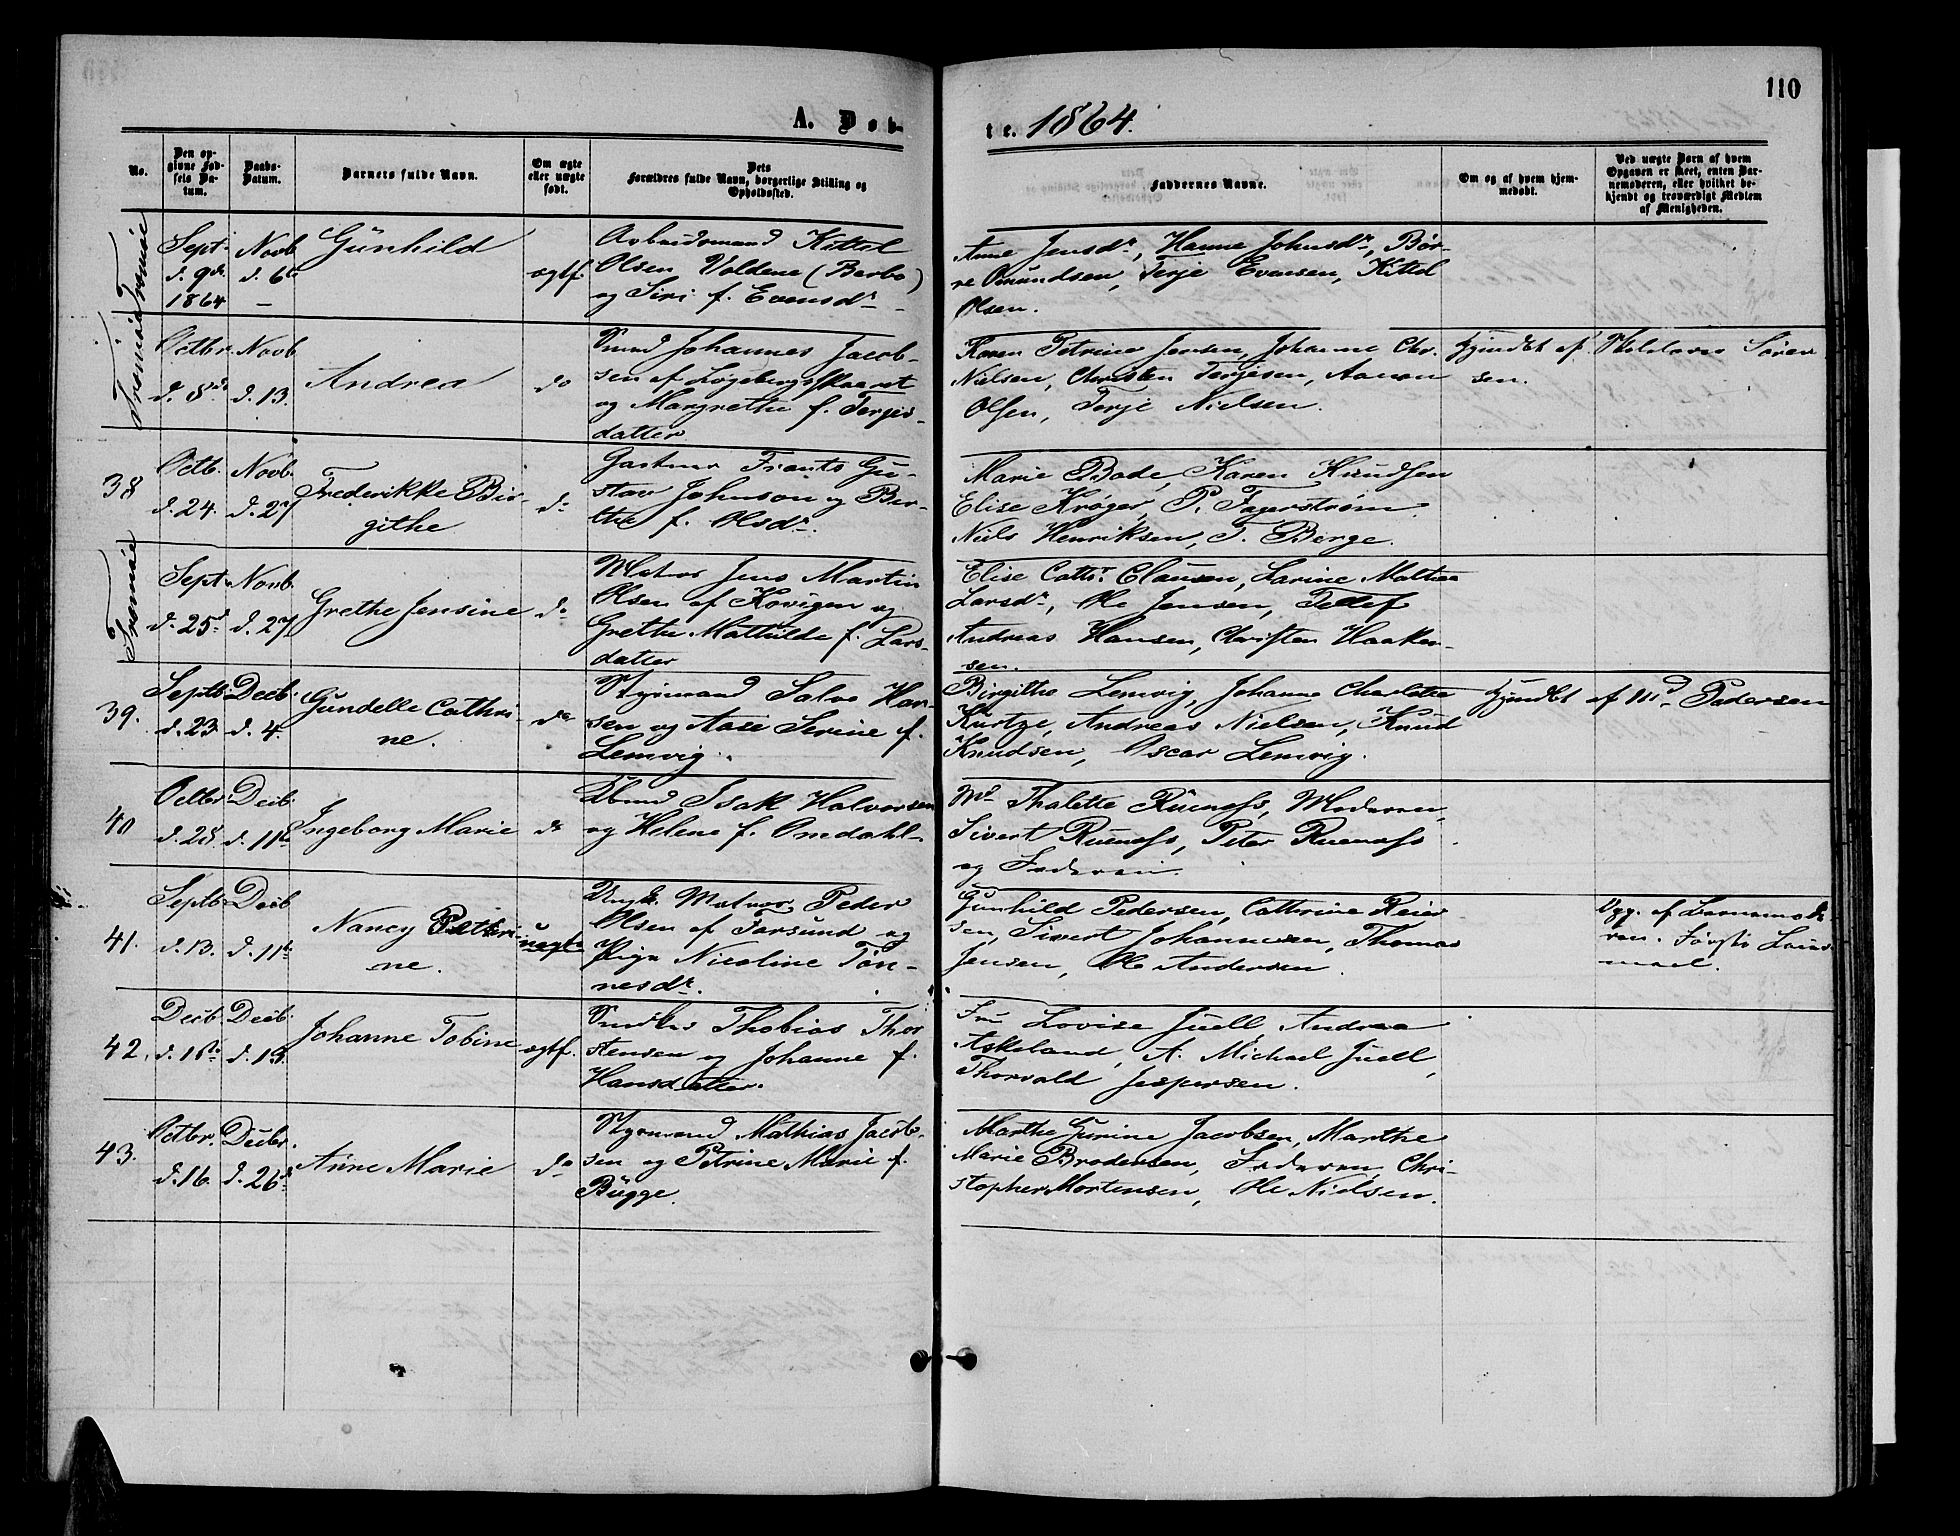 110
A. Døb-
te. 1864.
No.
Den op-
givne Fød-
sels Da-
tum.
Daabs-
Datum.
Barnets fulde Navn.
Om ægte
eller uægte
født.
Dets
Forældres fulde Navn, borgerlige Stilling og
Opholdssted.
Faddernes Navne.
Om og af hvem hjem-
medøbt.
Ved uægte Børn af hvem
Opgaven er skeet, enten Bar-
nemoderen, eller hvilket be-
kjendt og troværdigt Medlem
af Menigheden.
Tromöe
Sept.
d. 9de
1864
Novb
d. 6te
Gunhild
ægtf.
Arbeidsmand Kittel
Olsen Voldene (Barbo)
og Siri f. Evensdr
Anne Jensdr, Hanne Johnsdr, Bør-
re Omundsen, Terje Evensen, Kittel
Olsen.
Tromöe
Octbr
d. 8de
Novb
d. 13.
Andrea
do
Smed Johannes Jacob-
sen af Løgebergsskaaret
og Margrethe f. Terjes-
datter
Karen Petrine Jensen, Johanne Chr.
Nielsen, Christen Terjesen, Aanon
Olsen, Terje Nielsen.
Hjmdbt af Skolelærer Søren-
sen.
38
Octb.
d. 24.
Novb.
d. 27
Frederikke Bir-
githe
do
Gartner Frants Gu-
stav Johnson og Ber-
the f. Olsdr.
Marie Bode, Karen Knudsen
Elise Krøger, P. Fagerstrøm
Niels Henriksen, T. Berge.
Tromöe
Sept.
d. 25de
Novb.
d. 27
Grethe Jensine
do
Matros Jens Martin
Olsen af Kovigen og
Grethe Mathilde f. Lars-
datter
Elise Cathr. Clausen, Larine Mathea
Larsdr, Ole Jensen, Tellef
Andreas Hansen, Christen Haaken-
sen.
39.
Septb.
d. 23.
Decb.
d. 4.
Gundelle Cathri-
ne.
do
Styrmand Salve Han-
sen og Aase Serine f.
Lemvig.
Birgithe Lemvig, Johanne Charlotte
Kurtze, Andreas Nielsen, Knud
Knudsen, Oscar Lemvig.
Hjmdbt af Md. Pedersen
40
Octbr.
d. 28.
Decb.
d. 11te
Ingeborg Marie
do
Isak Halvorsen
og Helene f. Omdahl
Md Thalette Ruenæss, Moderen,
Sivert Ruenæss, Peter Ruenæss
og Faderen.
41.
Septb.
d. 13.
Decb
d. 11te
Nancy Pettri-
ne.
uægte
Ungk. Matros Peder
Olsen af Farsund og
Pige Nicoline Tøn-
nesdr.
Gunhild Pedersen, Cathrine Reier
sen, Sivert Johannesen, Thomas
Jensen, Ole Andersen.
Opg. af Barnemode
ren. Første Leier-
maal.
42.
Decb.
d. 16te
Decb.
d. 19.
Johanne Tobine
ægtf.
Snedker Thobias Thor
stensen og Johanne f.
Hansdatter.
Fru Lovise Juell, Andrea
Askeland, A. Michael Juell,
Thorvald Jespersen.
43.
Octbr.
d. 16.
Decbr.
d. 26de
Anne Marie
do
Styrmand Mathias Jacob-
sen og Petrine Marie f.
Bugge.
Marthe Gurine Jacobsen, Marthe
Marie Brodersen, Faderen, Chri-
stopher Mortensen, Ole Nielsen.